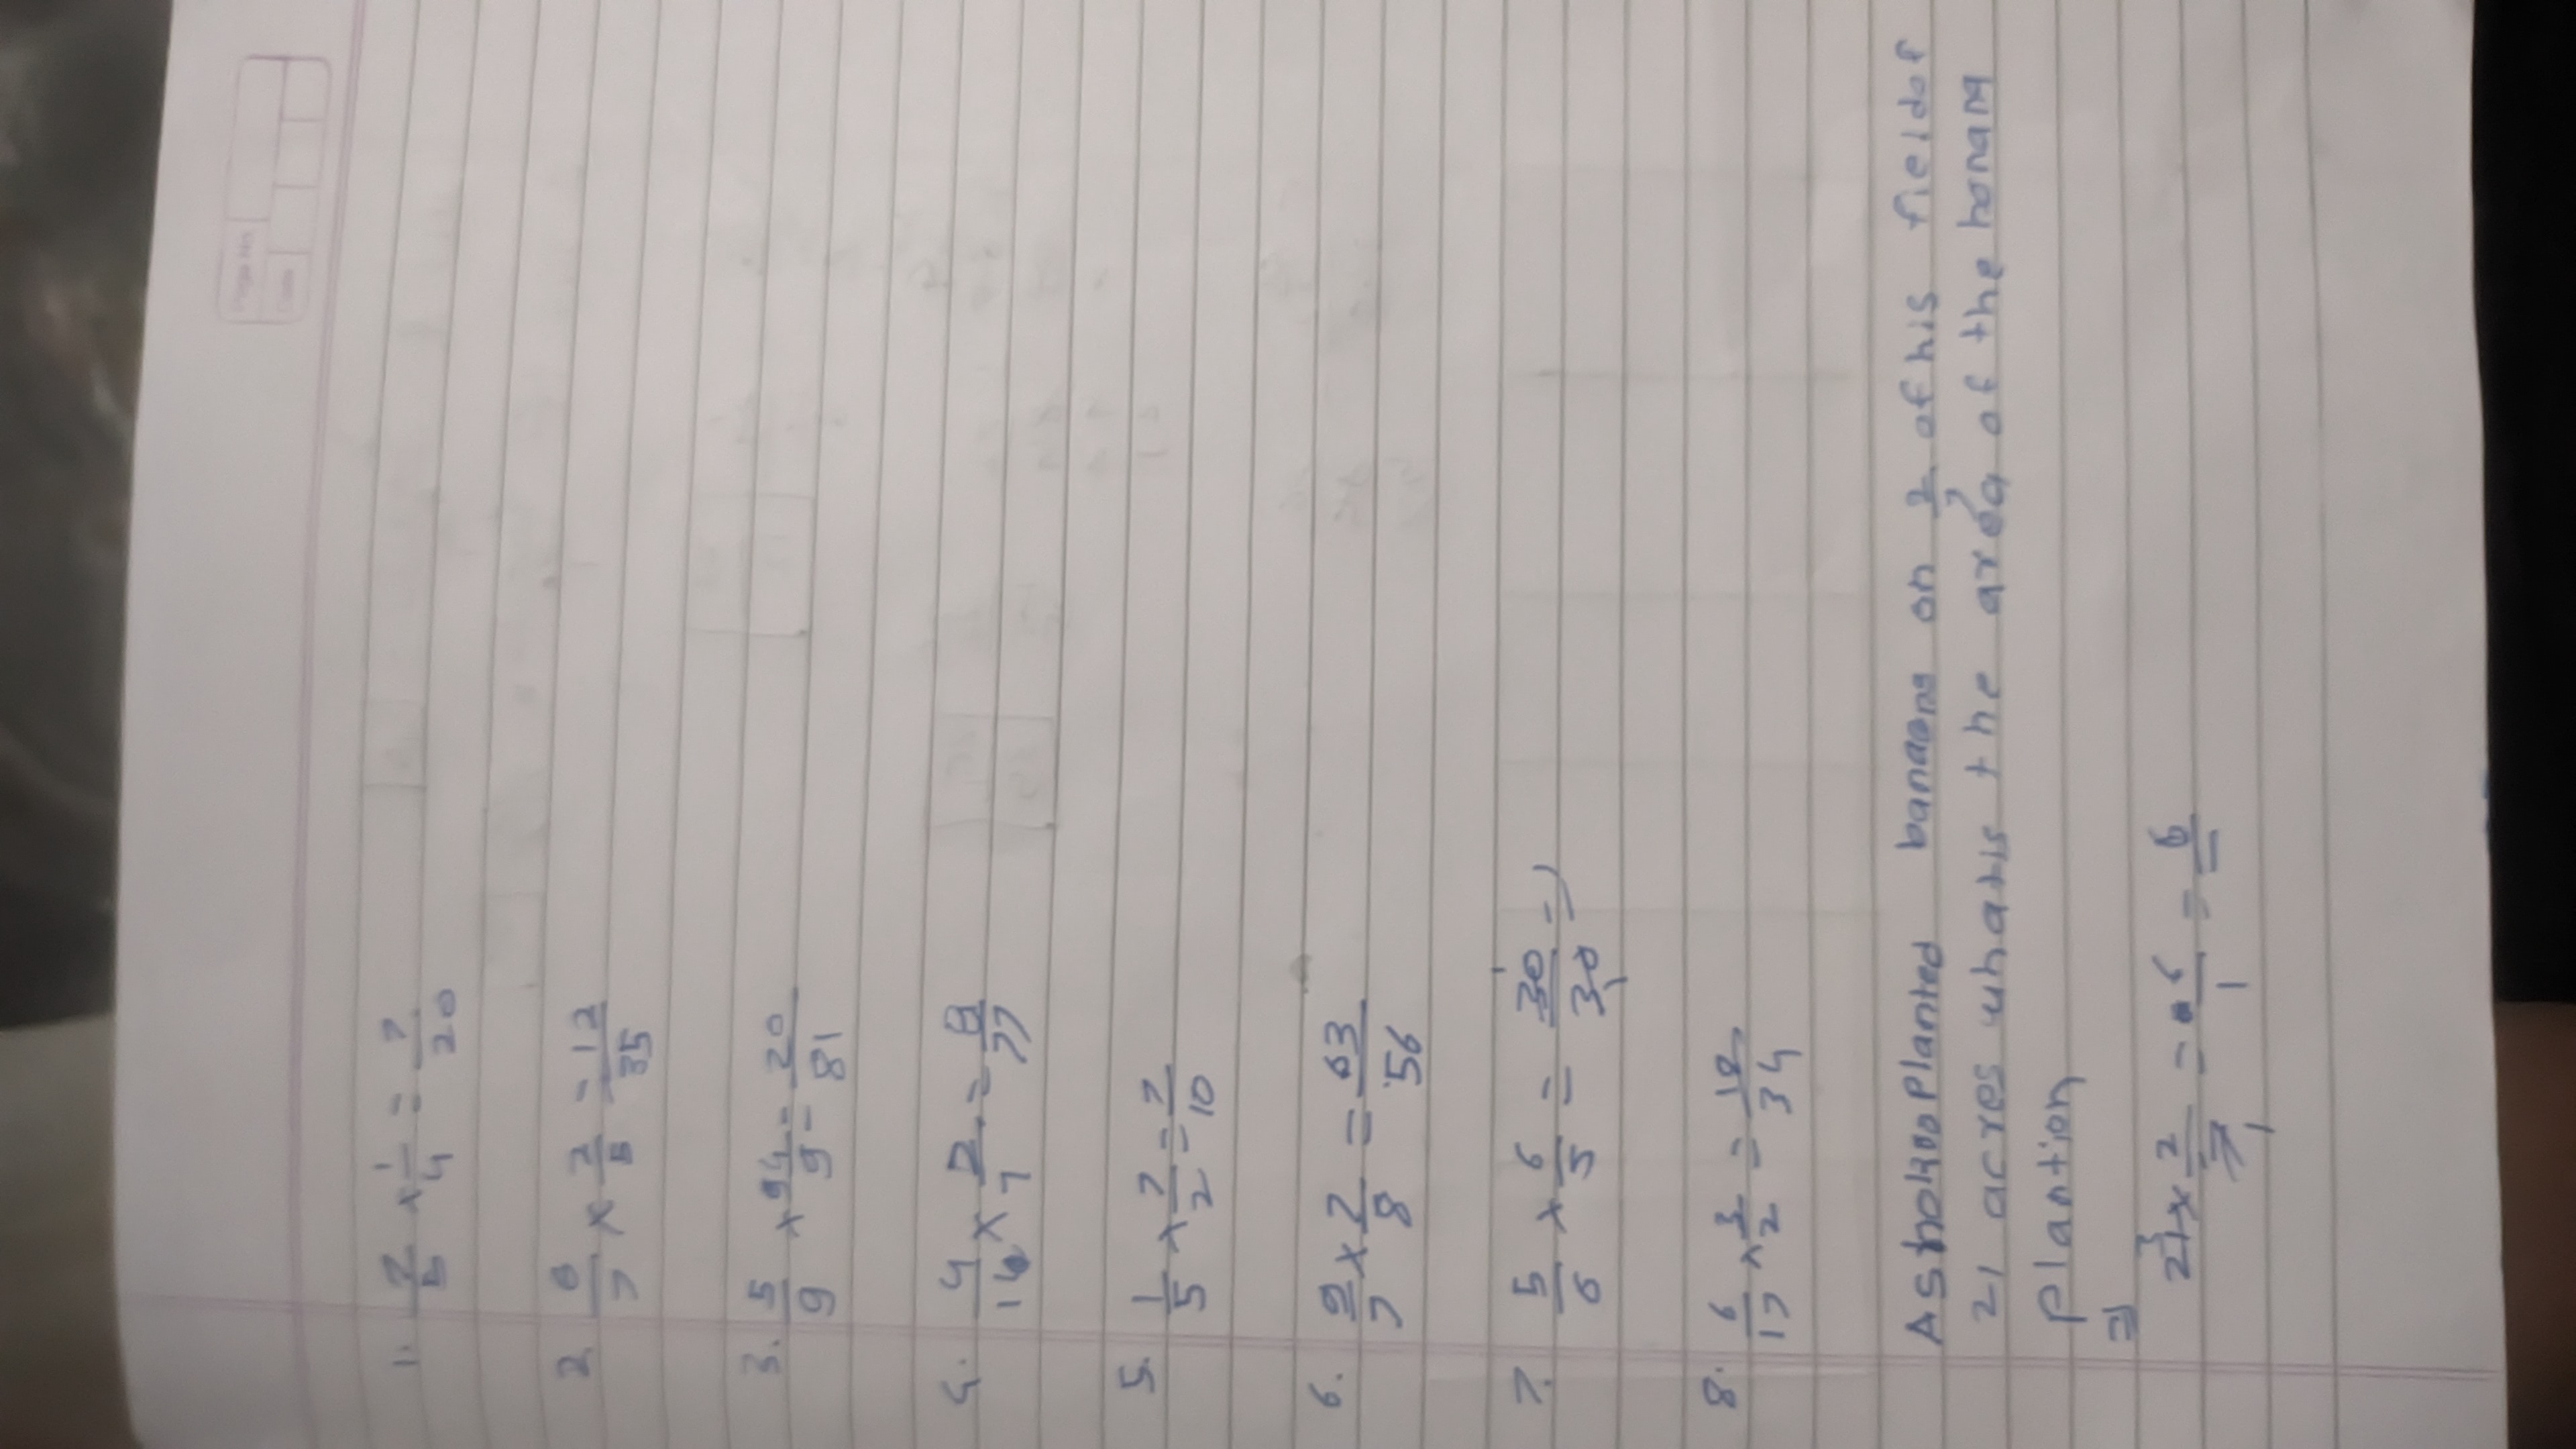 Page No.
Date
1. 7/5 × 1/4 = 7/20
2. 6/7 × 2/5 = 12/35
3. 5/9 × 4/9 = 20/81
4. 4/11 × 2/7 = 8/77
5. 1/5 × 7/2 = 7/10
6. 9/7 × 7/8 = 63/56
7. 5/6 × 6/5 = 30/30 = 1
8. 6/17 × 3/2 = 18/34
planted banana on 2/7 of his field of
21 acres what is the area of the banana
plantion
⇒ 21 × 2/7 = 6/1 = 6